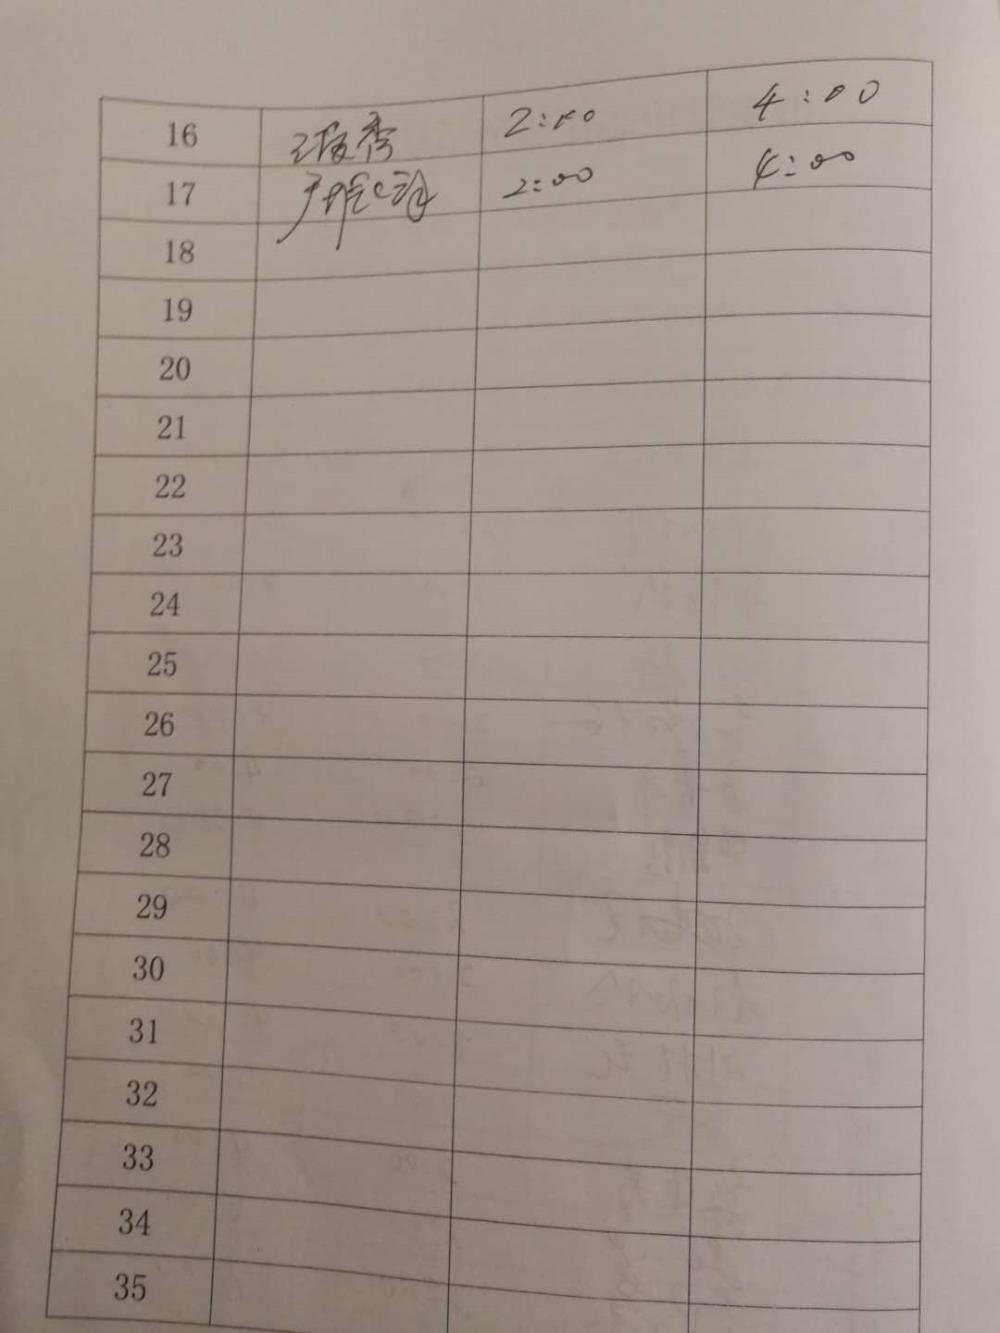 16 秀 2:00 4:00
17 2:00 4:00
18
19
20
21
22
23
24
25
26
27
28
29
30
31
32
33
34
35